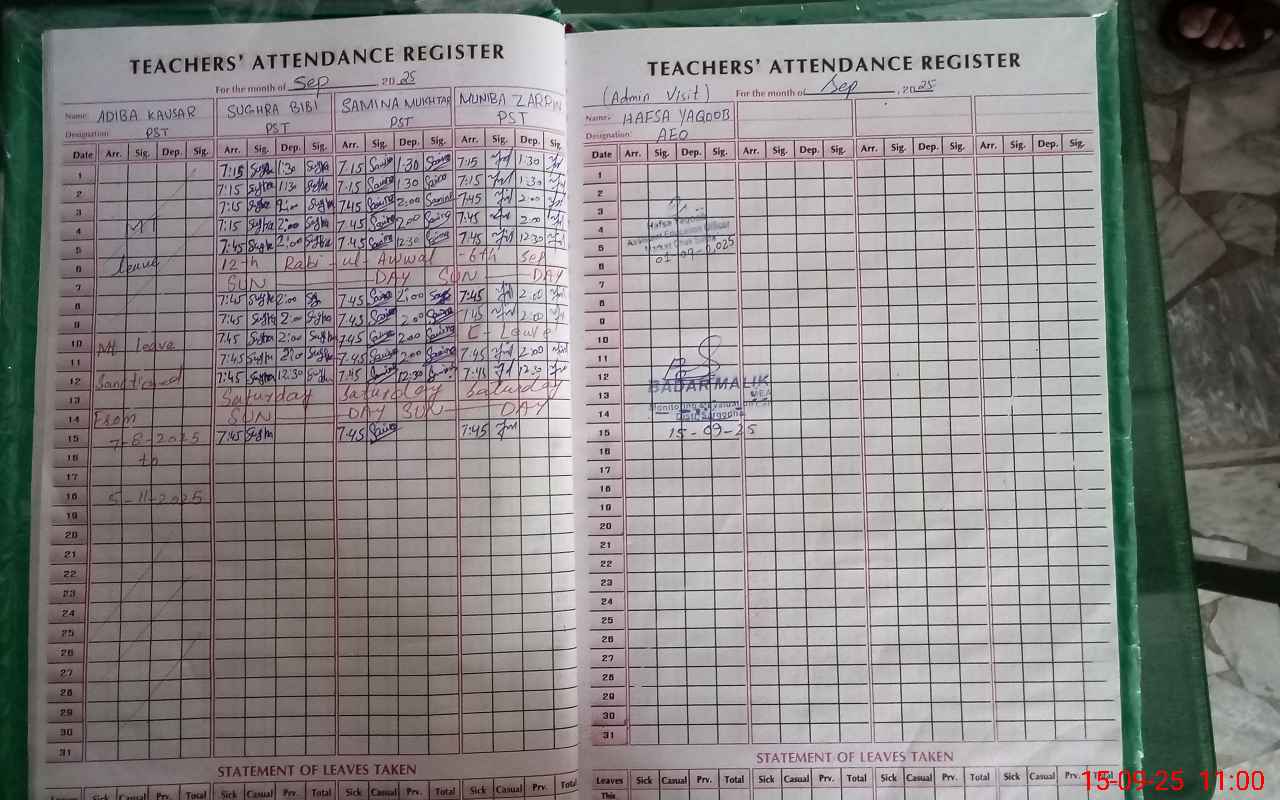 TEACHERS' ATTENDANCE REGISTER
For the month of Sep 2025
Name: ADIBA KAUSAR SUGHRA BIBI SAMINA MUKHTAR MUNIBA ZARRIN
Designation: PST PST PST PST
Date Arr. Sig. Dep. Sig. Arr. Sig. Dep. Sig. Arr. Sig. Dep. Sig. Arr. Sig. Dep. Sig.
1 7:15 1:30 7:15 1:30 7:15 1:30
2 7:15 1:30 7:15 1:30 7:15 1:30
3 7:15 2:00 7:45 2:00 7:45 2:00
4 7:15 2:00 7:45 2:00 7:45 2:00
5 7:45 2:00 7:45 12:30 7:45 12:30
6 leave 12th Rabi-ul-Awwal - 6th Sep
7 SUN DAY SUN DAY
8 7:45 2:00 7:45 2:00 7:45 2:00
9 7:45 2:00 7:45 2:00 7:45 2:00
10 Mt leave 7:45 2:00 7:45 2:00 C-Leave
11 7:45 2:00 7:45 2:00 7:45 2:00
12 Sanctioned 7:45 12:30 7:45 12:30 7:45 12:30
13 Saturday Saturday Saturday
14 From SUN DAY SUN DAY
15 7-8-2025 7:45 7:45 7:45
16 to
17
18 5-11-2025
19
20
21
22
23
24
25
26
27
28
29
30
31
STATEMENT OF LEAVES TAKEN
Leaves Sick Casual Prv. Total Sick Casual Prv. Total Sick Casual Prv. Total Sick Casual Prv. Total
TEACHERS' ATTENDANCE REGISTER
(Admin Visit) For the month of Sep, 2025
Name: HAFSA YAQOOB
Designation: AEO
Date Arr. Sig. Dep. Sig. Arr. Sig. Dep. Sig. Arr. Sig. Dep. Sig. Arr. Sig. Dep. Sig.
1
2
3
4 Hafsa Yaqoob
5 Assistant Education Officer
6
7
8
9
10
11
12
13 BADAR MALIK
MEA
14 Monitoring & Evaluation
Distt. Sargodha
15 15-09-25
16
17
18
19
20
21
22
23
24
25
26
27
28
29
30
31
STATEMENT OF LEAVES TAKEN
Leaves Sick Casual Prv. Total Sick Casual Prv. Total Sick Casual Prv. Total Sick Casual Prv. Total
This
15-09-25 11:00